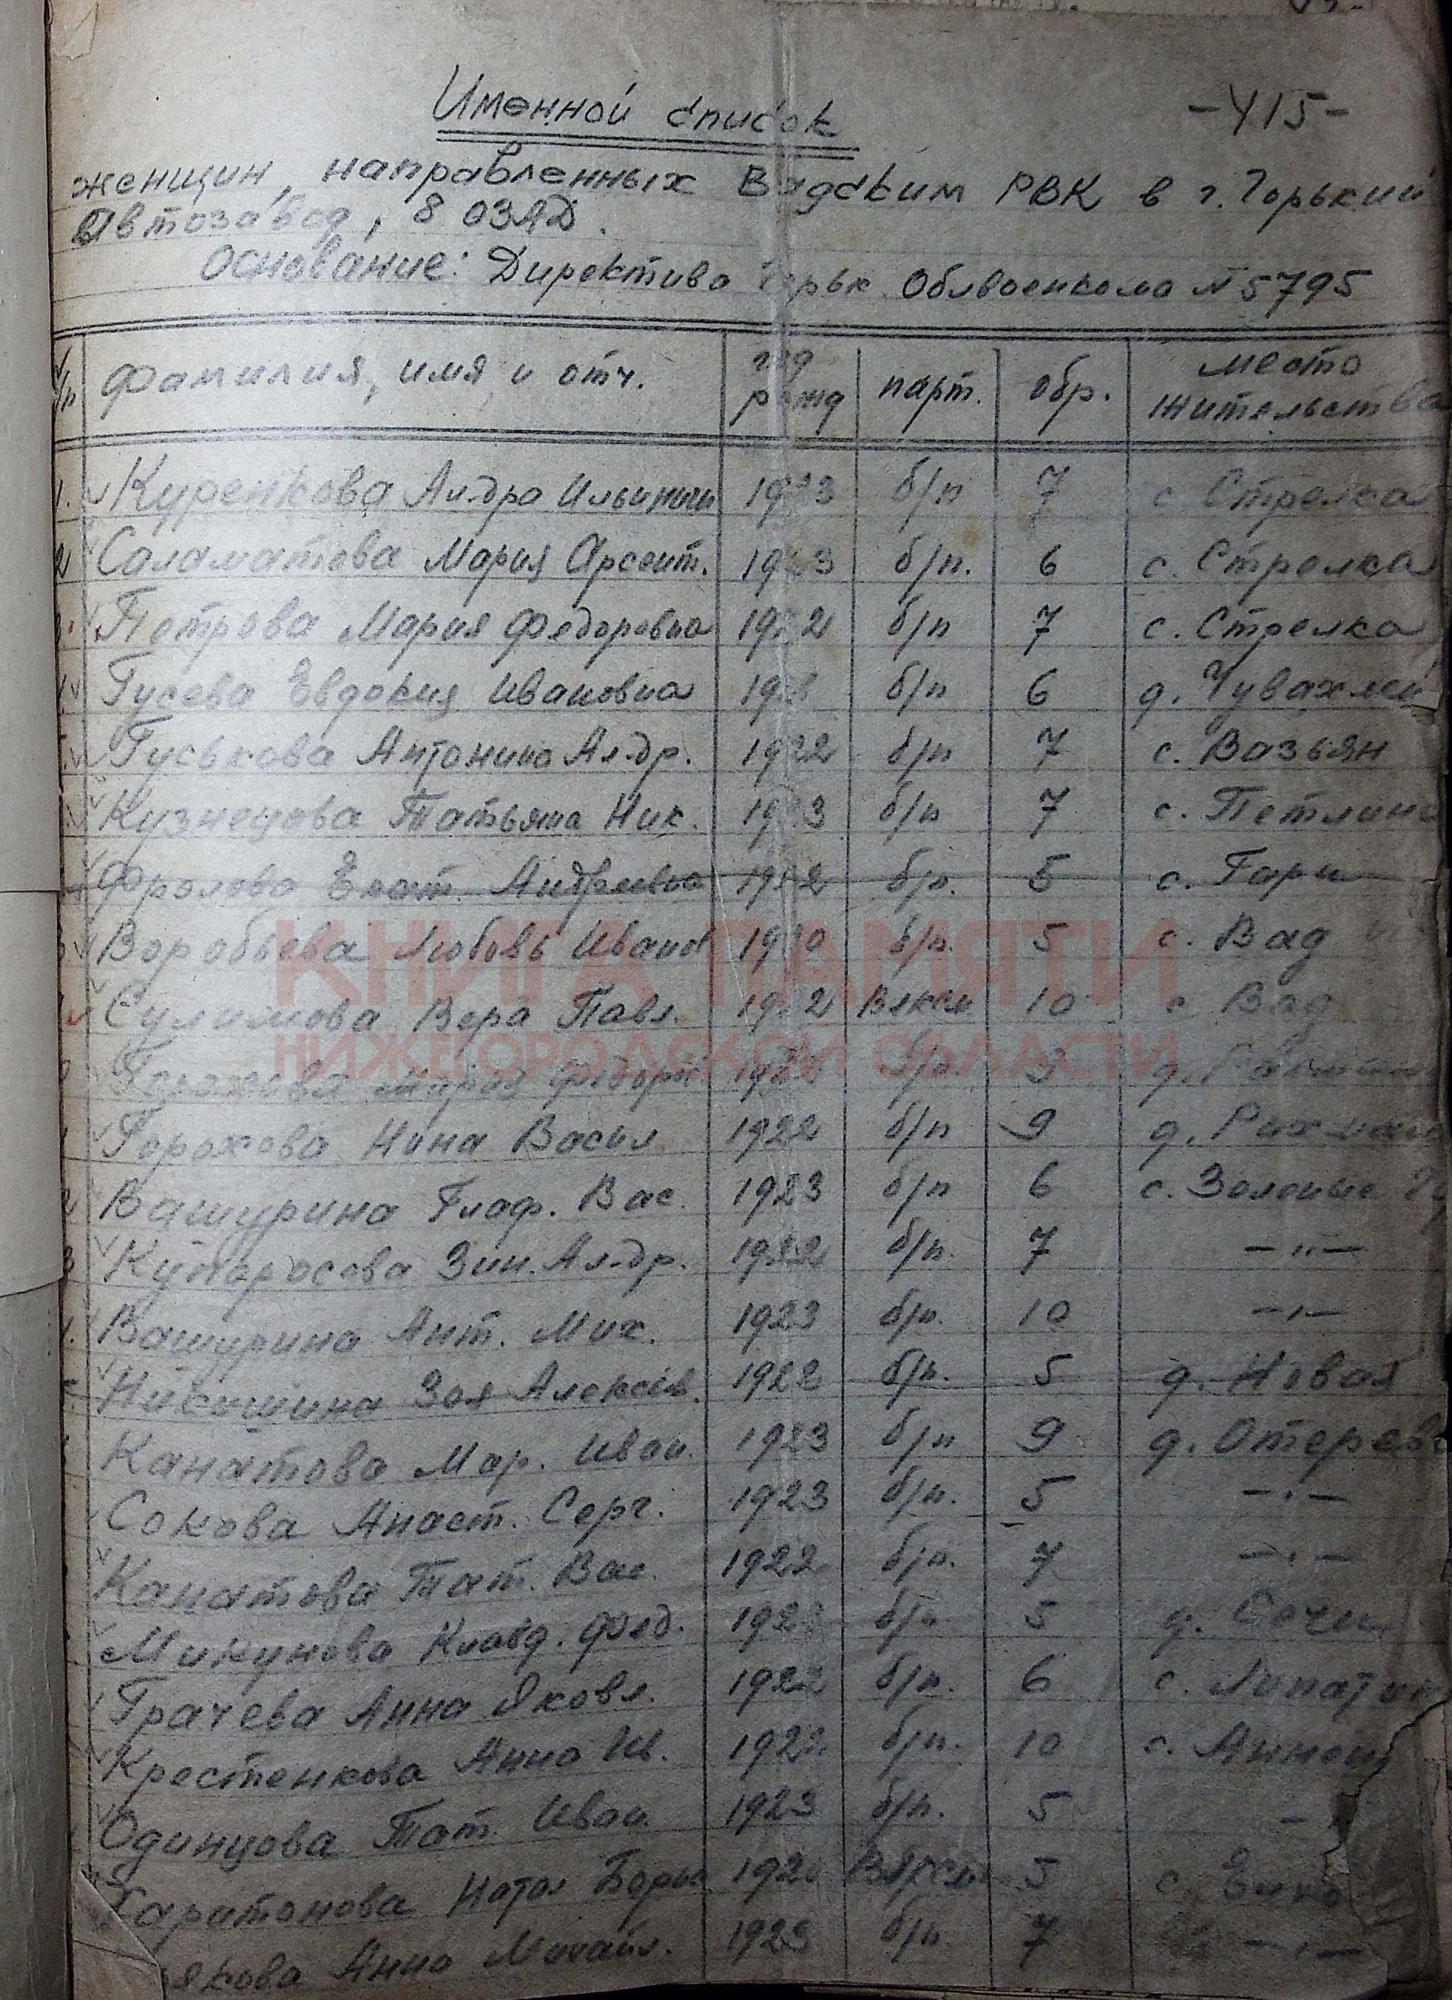 -415-
Именной список
женщин, направленных Вадским РВК в г. Горький
Автозавод, 8 ОЗАД.
Основание: Директива Горьк. Облвоенкома № 5795
фамилия, имя и отч. год рожд парт. обр. место жительства
1. Куренкова Ал-дра Ильинич 1923 б/п 7 с. Стрелка
2 Саламатова Мария Арсент. 1923 б/п. 6 с. Стрелка
Петрова Мария Федоровна 1922 б/п 7 с. Стрелка
Гусева Евдокия Ивановна б/п 6 д. Чувахлей
Гуськова Антонина Ал-др. 1922 б/п 7 с. Вазьян
Кузнецова Татьяна Ник. 1923 б/п 7 с. Петлино
Фролова Екат. Андреевна 1922 б/п. 5 с. Гари
Воробьева Любовь Иванов 1920 б/п. 5 с. Вад
Сулимова Вера Павл. 1922 Влксм 10 с Вад
КНИГА ПАМЯТИ
НИЖЕГОРОДСКОЙ ОБЛАСТИ
Горохова Мария Федор 1922 б/п 9 д.
Горохова Нина Васил 1922 б/п 9 д.
Вашурина Глаф. Вас. 1923 б/п 6 с. Зеленые
Кипарисова Зин. Ал-др. 1922 б/п. 7 —"—
Вашурина Ант. Мих. 1923 б/п. 10 —"—
Никишина Зоя Алексеев. 1922 б/п. 5 д. Новая
Канатова Мар. Иван. 1923 б/п 9 д. Отерево
Сокова Анаст. Серг. 1923 б/п. 5 —"—
Канатова Тат. Вас. 1922 б/п. 7 —"—
Микунова Клавд. Фед. б/п 5 д.
Грачева Анна Яковл. 1922 б/п. 6 с.
Крестенкова Анна Ив. 1922 б/п. 10 с.
Одинцова Тат. Иван. 1923 б/п. 5
Харитонова Натал Борис 5 с.
якова Анна Михайл. 1923 б/п. 7 —"—